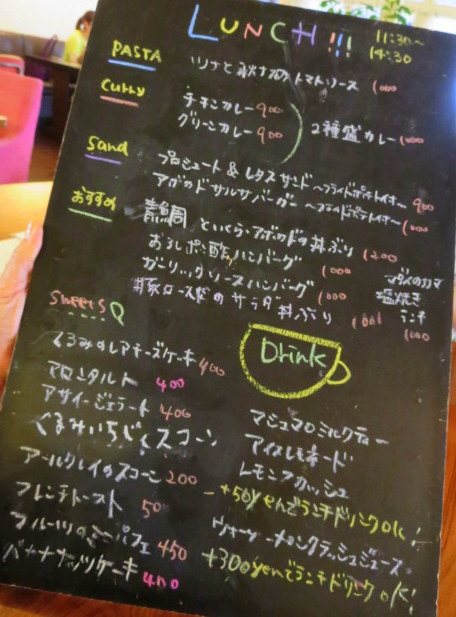 LUNCH!!! 11:30~14:30
PASTA
ツナと秋ナスのトマトソース 1000
Curry
チキンカレー 900
グリーンカレー 900
2種盛カレー 1000
Sand
プロシュート&レタスサンド ~フライドポテト付~ 900
アボカドサルサバーガー ~フライドポテト付~ 1000
おすすめ
といくら・アボカドの丼ぶり 1200
おろしポン酢ハンバーグ 1000
ガーリックソースハンバーグ 1000
豚ロースのサラダ丼ぶり
マダイのカマ
塩焼き
ランチ
1000
Sweets
くるみのレアチーズケーキ 400
タルト 400
アサイージェラート 400
スコーン
アールグレイのスコーン 200
フレンチトースト
フルーツの パフェ 450
バナナナッツケーキ 400
Drink
マシュマロミルクティー
アイスレモネード
レモンスカッシュ
+50yenでランチドリンクOK!
クラッシュジュース
+300yenでランチドリンクOK!